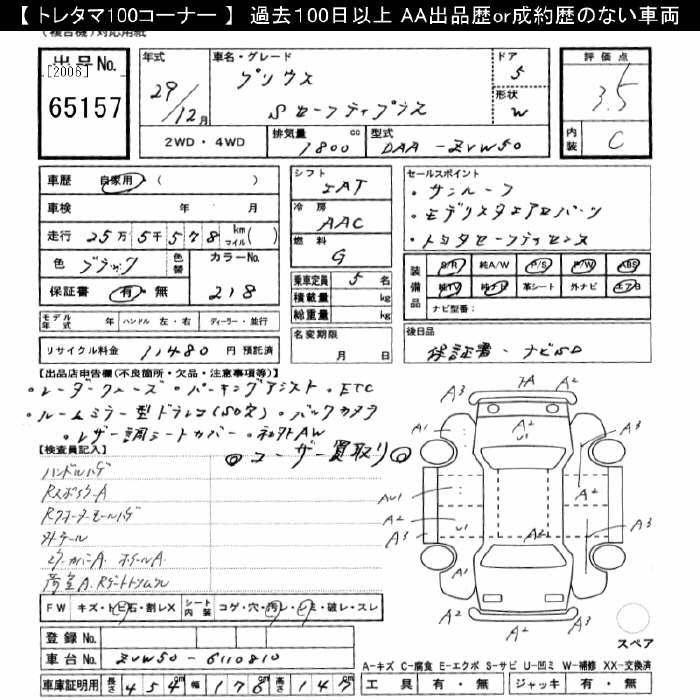 【 トレタマ100コーナー 】 過去100日以上 AA出品歴or成約歴のない車両
(複合機)対応用紙
出品No.
[2006]
65157
年式
29/12月
車名・グレード
プリウス
Sセーフティプラス
ドア
5
形状
W
評価点
3.5
内装
C
2WD・4WD
排気量
1800 cc
型式
DAA-ZVW50
車歴 自家用 ( )
車検 年 月
走行 25万5千578 km マイル( )
色 ブラック 色替 カラーNo.
保証書 有・無 218
モデル年式 年 ハンドル 左・右 ディーラー・並行
リサイクル料金 11480 円 預託済
シフト
IAT
冷房
AAC
燃料
G
乗車定員 5 名
積載量 kg
総重量 kg
名変期限
月 日
セールスポイント
・サンルーフ
・モデリスタエアロパーツ
・トヨタセーフティセンス
装備品
S/R 純A/W P/S P/W ABS
純TV 純ナビ 革シート 外ナビ エアB
ナビ型番:
後日品
保証書・ナビSD
【出品店申告欄(不良箇所・欠品・注意事項等)】
・レーダークルーズ・パーキングアシスト・ETC
・ルームミラー型ドラレコ(SD欠)・バックカメラ
・レザー調シートカバー・社外AW
◎ユーザー買取り◎
【検査員記入】
ハンドルハゲ
RスポイラーA
Rクオーターモールハゲ
外テール
荷室A.
FW キズ・トビ石・割レX シート内装 コゲ・穴・汚レ・シミ・破レ・スレ
登録No.
車台No. ZVW50-6110810
車庫証明用 長さ 454cm 幅 176cm 高さ 147cm
A3 7A A2
A2 U1
A3 A3
A2
AU1 A2
A2 U1 A2 A3
A3
A2
A2 A3
スペア
A-キズ C-腐食 E-エクボ S-サビ U-凹ミ W-補修 XX-交換済
工具 有・無 ジャッキ 有・無